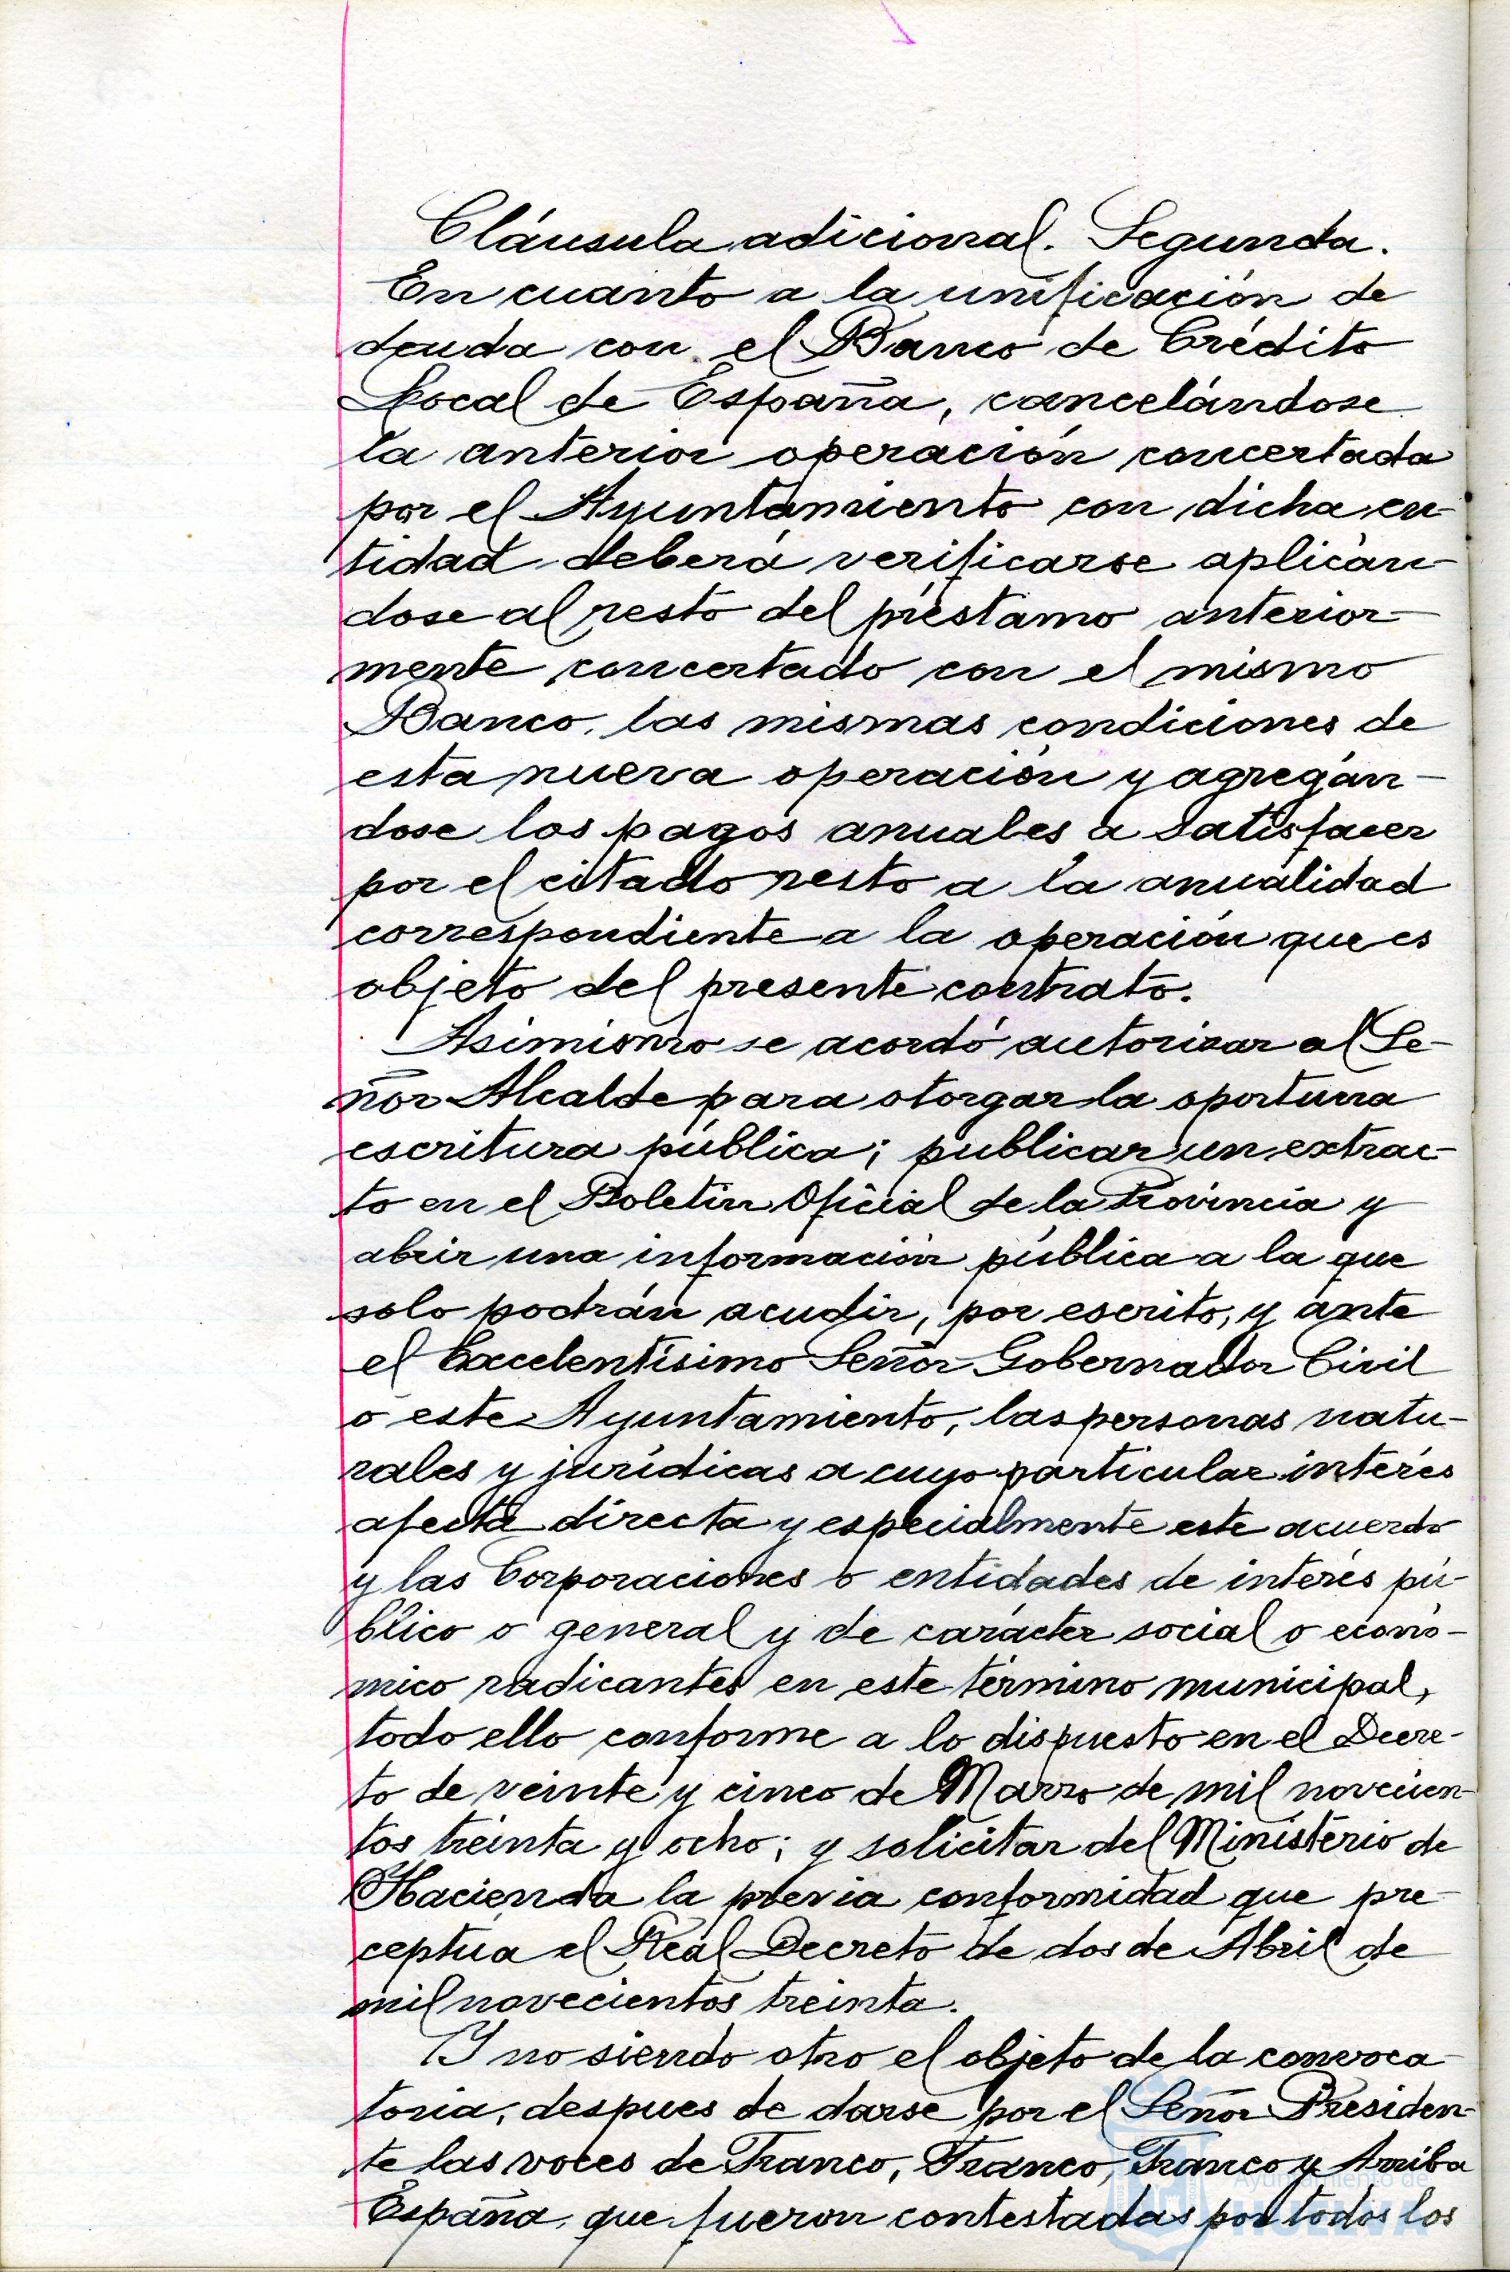 Cláusula adicional. Segunda.
En cuanto a la unificación de
deuda con el Banco de Crédito
Local de España, cancelándose
la anterior operación concertada
por el Ayuntamiento con dicha en-
tidad deberá verificarse aplicán-
dose al resto del préstamo anterior-
mente concertado con el mismo
Banco, las mismas condiciones de
esta nueva operación y agregán-
dose los pagos anuales a satisfacer
por el citado resto a la anualidad
correspondiente a la operación que es
objeto del presente contrato.
Asimismo se acordó autorizar al Se-
ñor Alcalde para otorgar la oportuna
escritura pública; publicar un extrac-
to en el Boletin Oficial de la Provincia y
abrir una información pública a la que
solo podrán acudir, por escrito, y ante
el Excelentísimo Señor Gobernador Civil
o este Ayuntamiento, las personas natu-
rales y jurídicas a cuyo particular interés
afecta directa y especialmente este acuerdo
y las Corporaciones o entidades de interés pú-
blico o general y de carácter social o econó-
mico radicantes en este término municipal,
todo ello conforme a lo dispuesto en el Decre-
to de veinte y cinco de Marzo de mil novecien-
tos treinta y ocho; y solicitar del Ministerio de
Hacienda la previa conformidad que pre-
ceptúa el Real Decreto de dos de Abril de
mil novecientos treinta.
Y no siendo otro el objeto de la convoca-
toria, despues de darse por el Señor Presiden-
te las voces de Franco, Franco, Franco y Arriba
España, que fueron contestadas por todos los
Ayuntamiento de
HUELVA